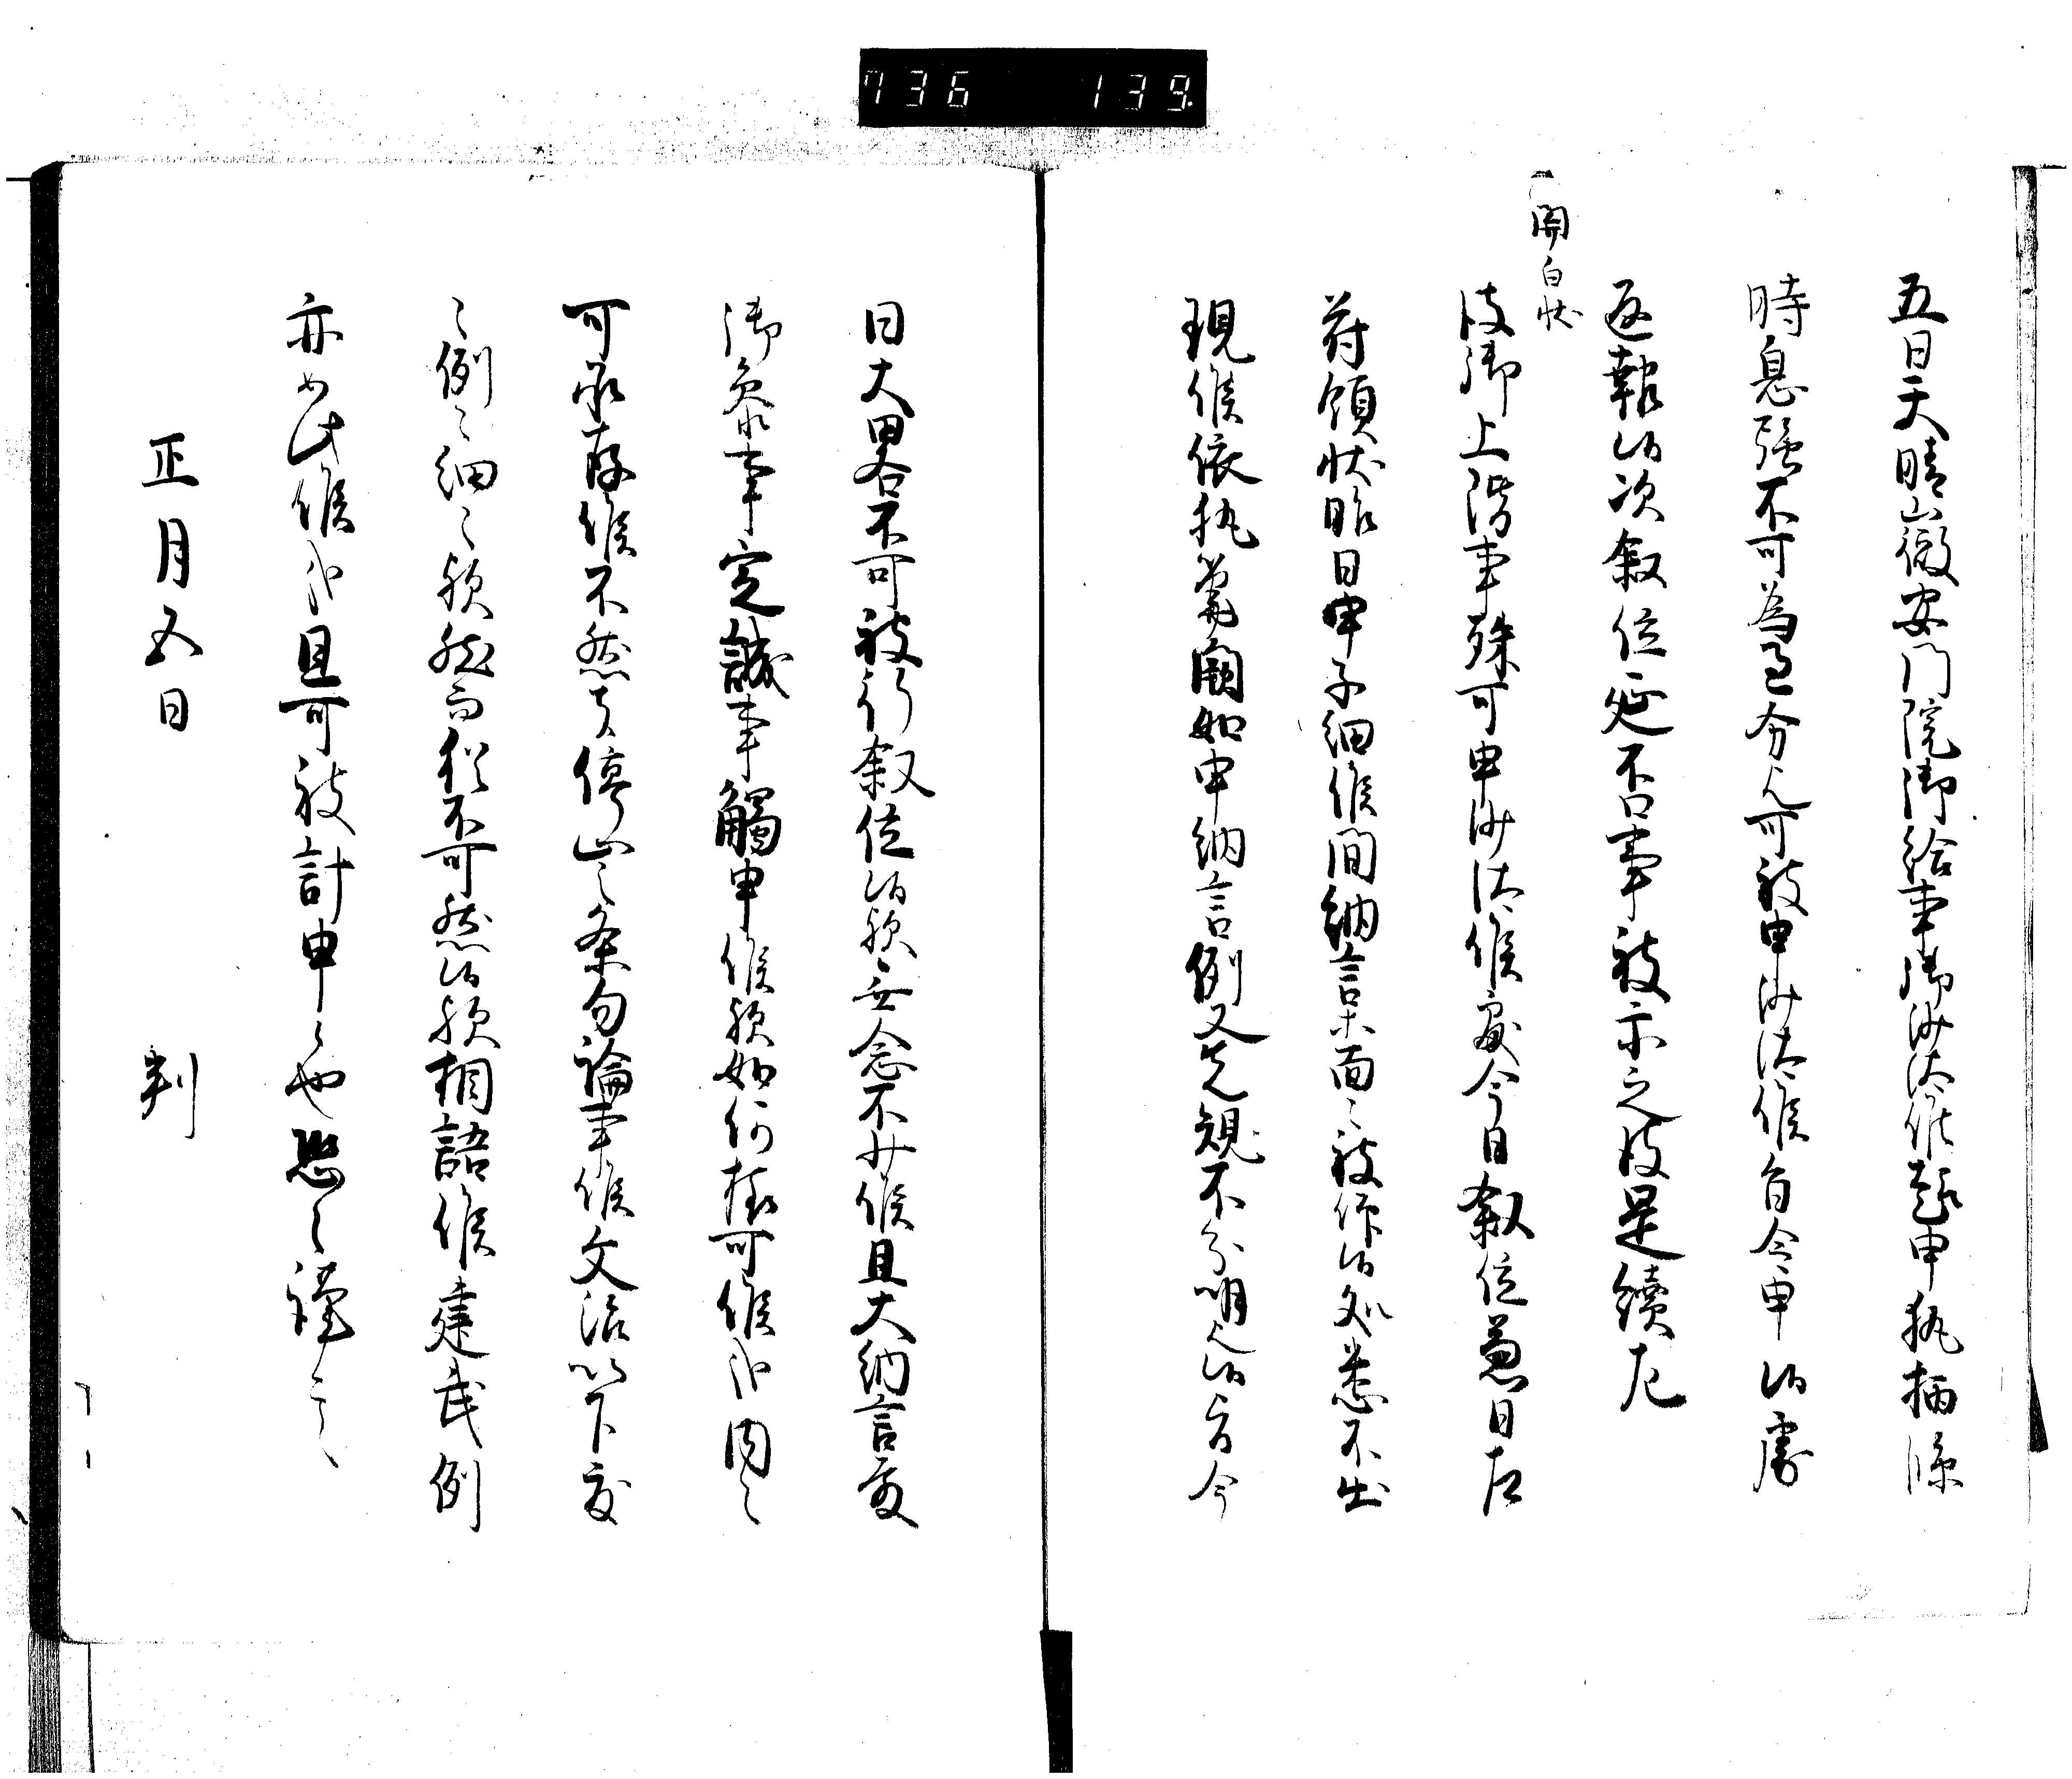 736 139
五日天晴山徹安門院御給事御沙汰候哉申執柄條
時息強不可為過分歟可被申沙汰候旨令申給處
返報給次叙位延否事被示之後是續左
関白状
彼御上階事殊可申沙汰候處今日叙位兼日左
府領状昨日申子細候間納言某面々被仰給処悉不出
現候依執筆闕如中納言例又先規不分明之給旨今
日大畧不可被行叙位給歟無念不少候且大納言殿
御參事定誠事觸申候歟如何樣可候哉内々
可承存候不然者停止之条勿論事候文治以下度
々例之細々歟然而猶不可然給歟相語候建武例
亦如此候哉且可被計申之也恐々謹言
正月五日
判